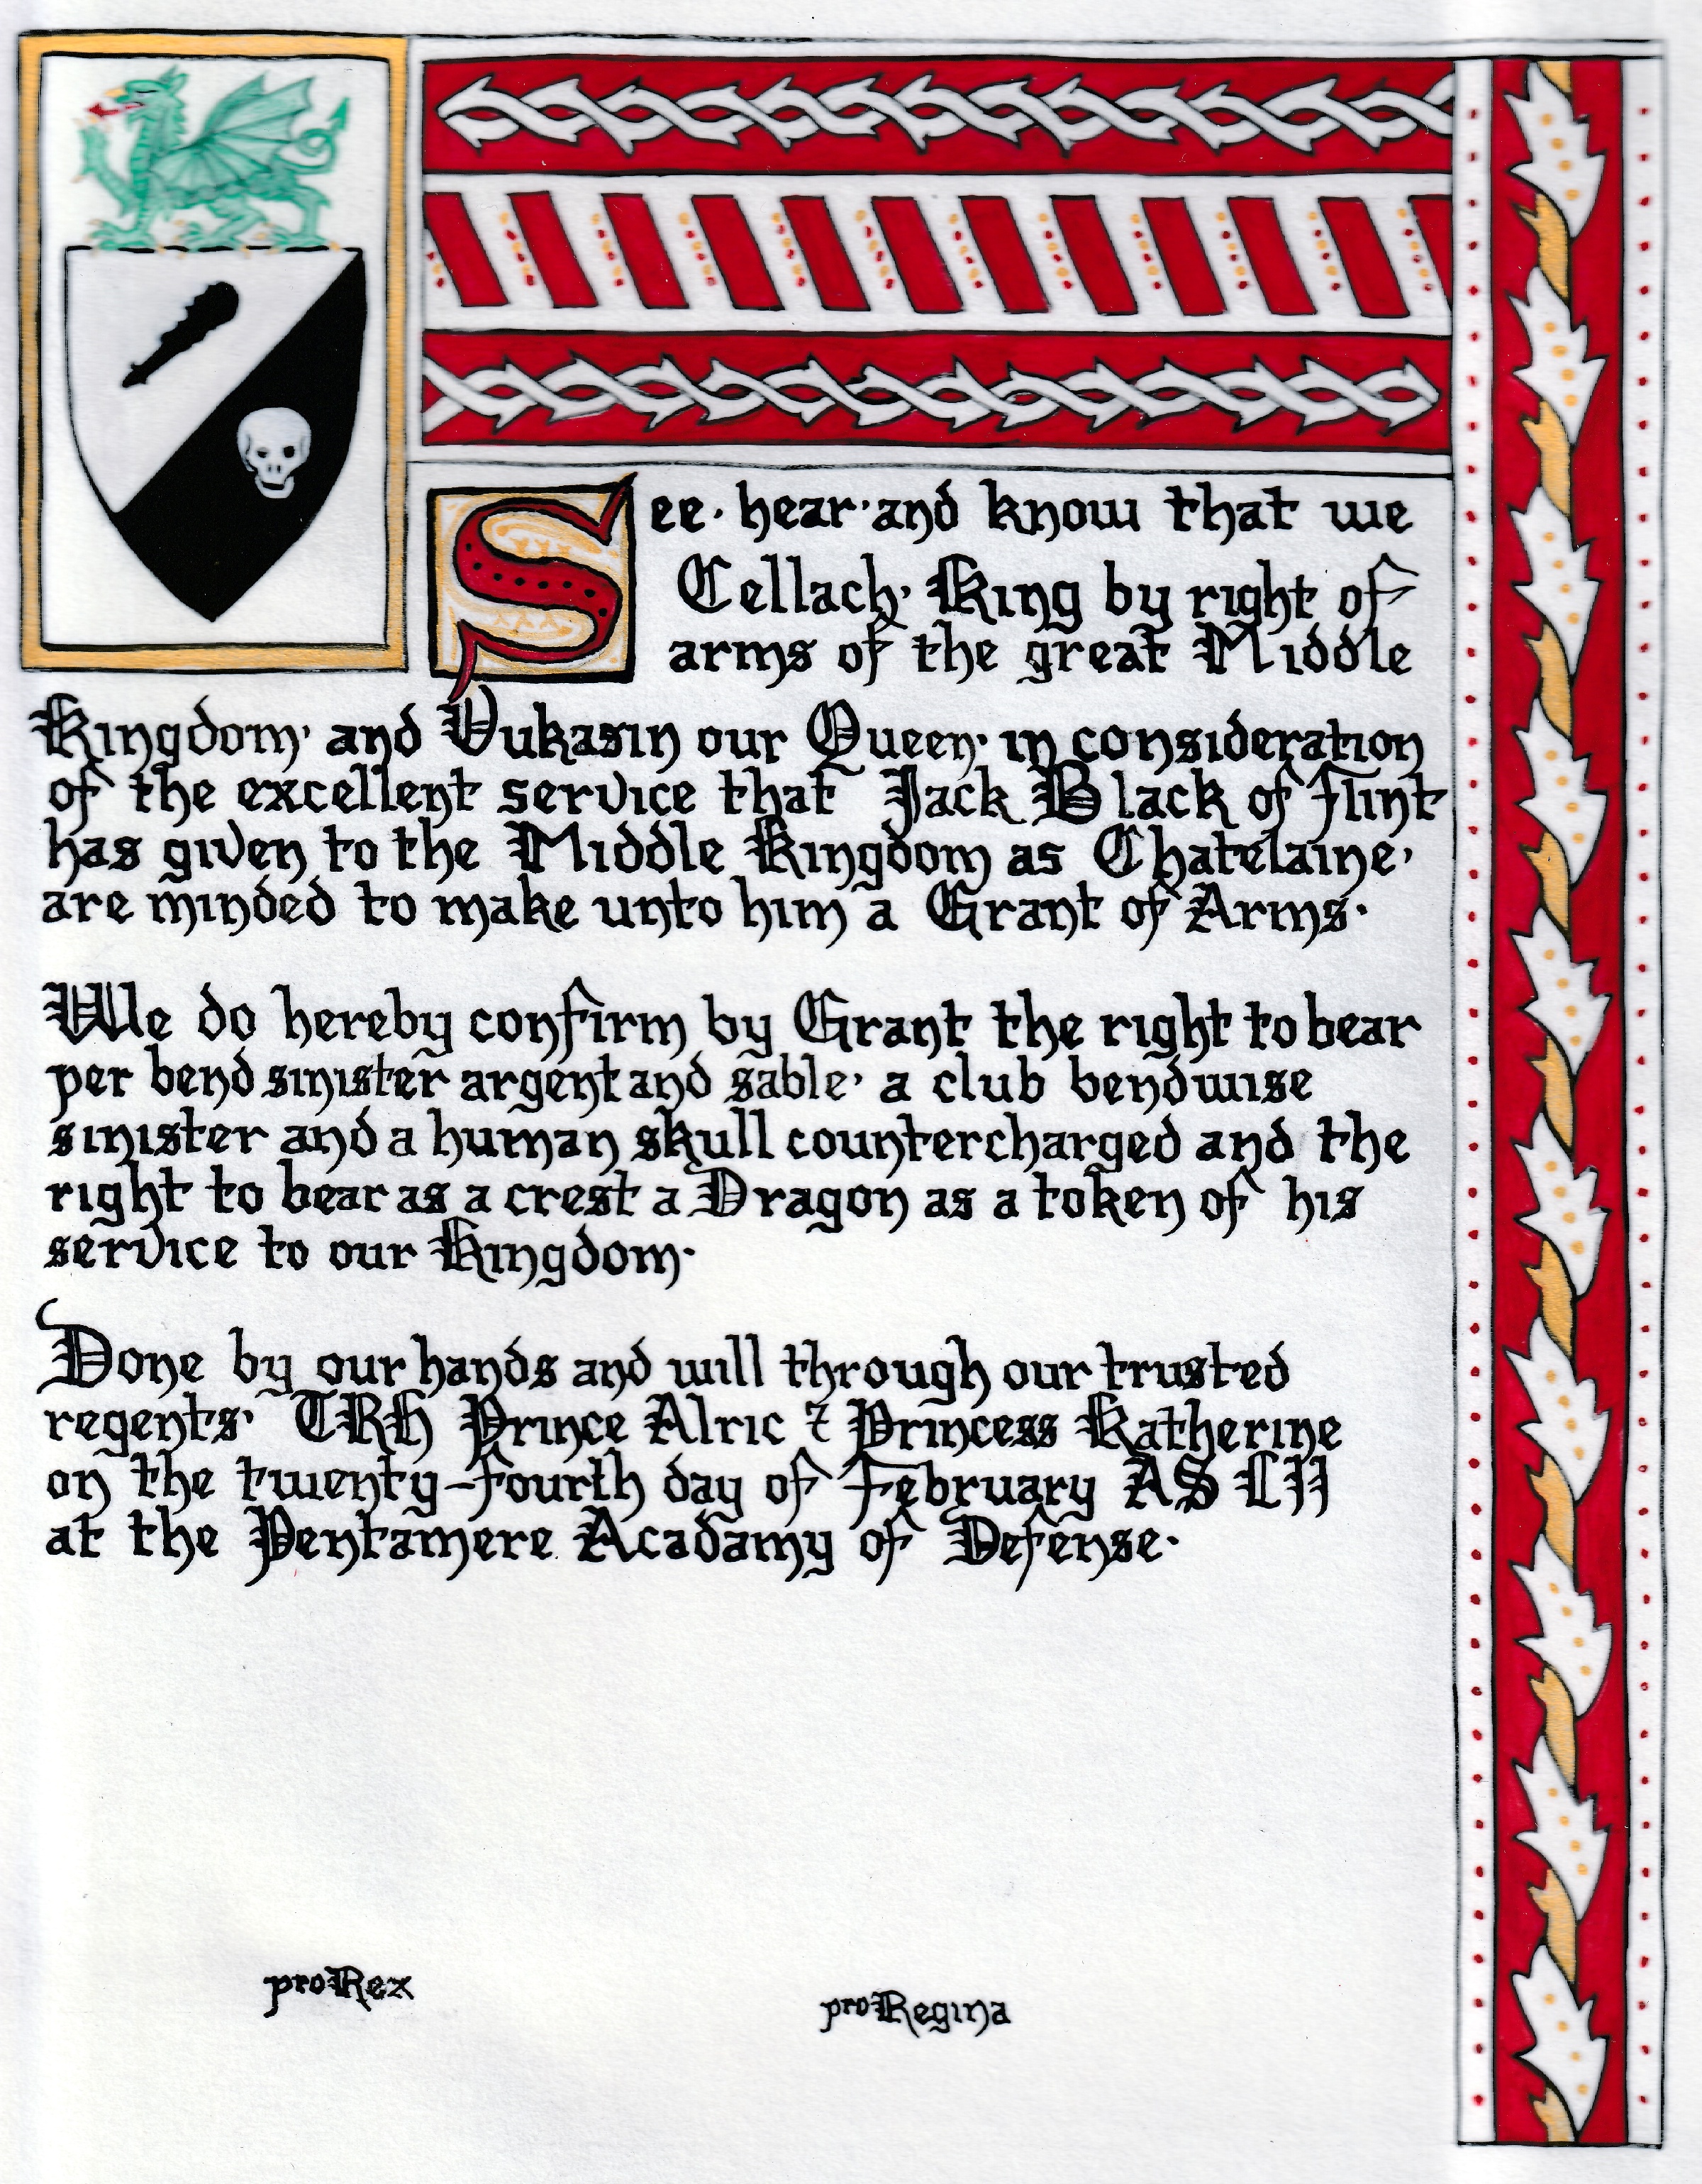 See · hear · and know that we
Cellach · King by right of
arms of the great Middle
Kingdom · and Vukasin our Queen · in consideration
of the excellent service that Jack Black of Flint
has given to the Middle Kingdom as Chatelaine ·
are minded to make unto him a Grant of Arms ·
We do hereby confirm by Grant the right to bear
per bend sinister argent and sable · a club bendwise
sinister and a human skull countercharged and the
right to bear as a crest a Dragon as a token of his
service to our Kingdom ·
Done by our hands and will through our trusted
regents · TRH Prince Alric ⁊ Princess Katherine
on the twenty-fourth day of February AS LII
at the Pentamere Acadamy of Defense ·
pro Rex
pro Regina